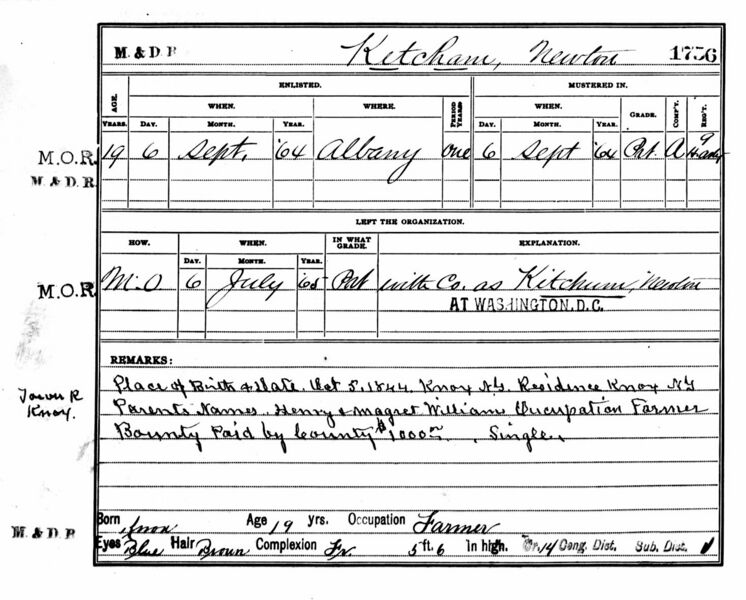 M. & D. R Ketcham, Newton 1756
ENLISTED. MUSTERED IN.
AGE. WHEN. WHERE. PERIOD YEARS. WHEN. GRADE. COMP'Y. REG'T.
YEARS. DAY. MONTH. YEAR. DAY. MONTH. YEAR.
M.O.R. 19 6 Sept. '64 Albany One 6 Sept '64 Pvt. A 9
M. & D. R.
LEFT THE ORGANIZATION.
HOW. WHEN. IN WHAT GRADE. EXPLANATION.
DAY. MONTH. YEAR.
M.O.R. M.O 6 July '65 Pvt with Co. as Kitchum, Newton
AT WASHINGTON, D.C.
REMARKS:
Place of Birth & Date. Oct 5, 1844. Knox N.Y. Residence Knox N.Y
Parents Names. Henry & Magret William Occupation Farmer
Bounty Paid by County $1000 Single.
Town R
Knox.
Born Knox Age 19 yrs. Occupation Farmer
M. & D. R
Eyes Blue Hair Brown Complexion Fr. 5 ft. 6 in high. 14 Cong. Dist. Sub. Dist.